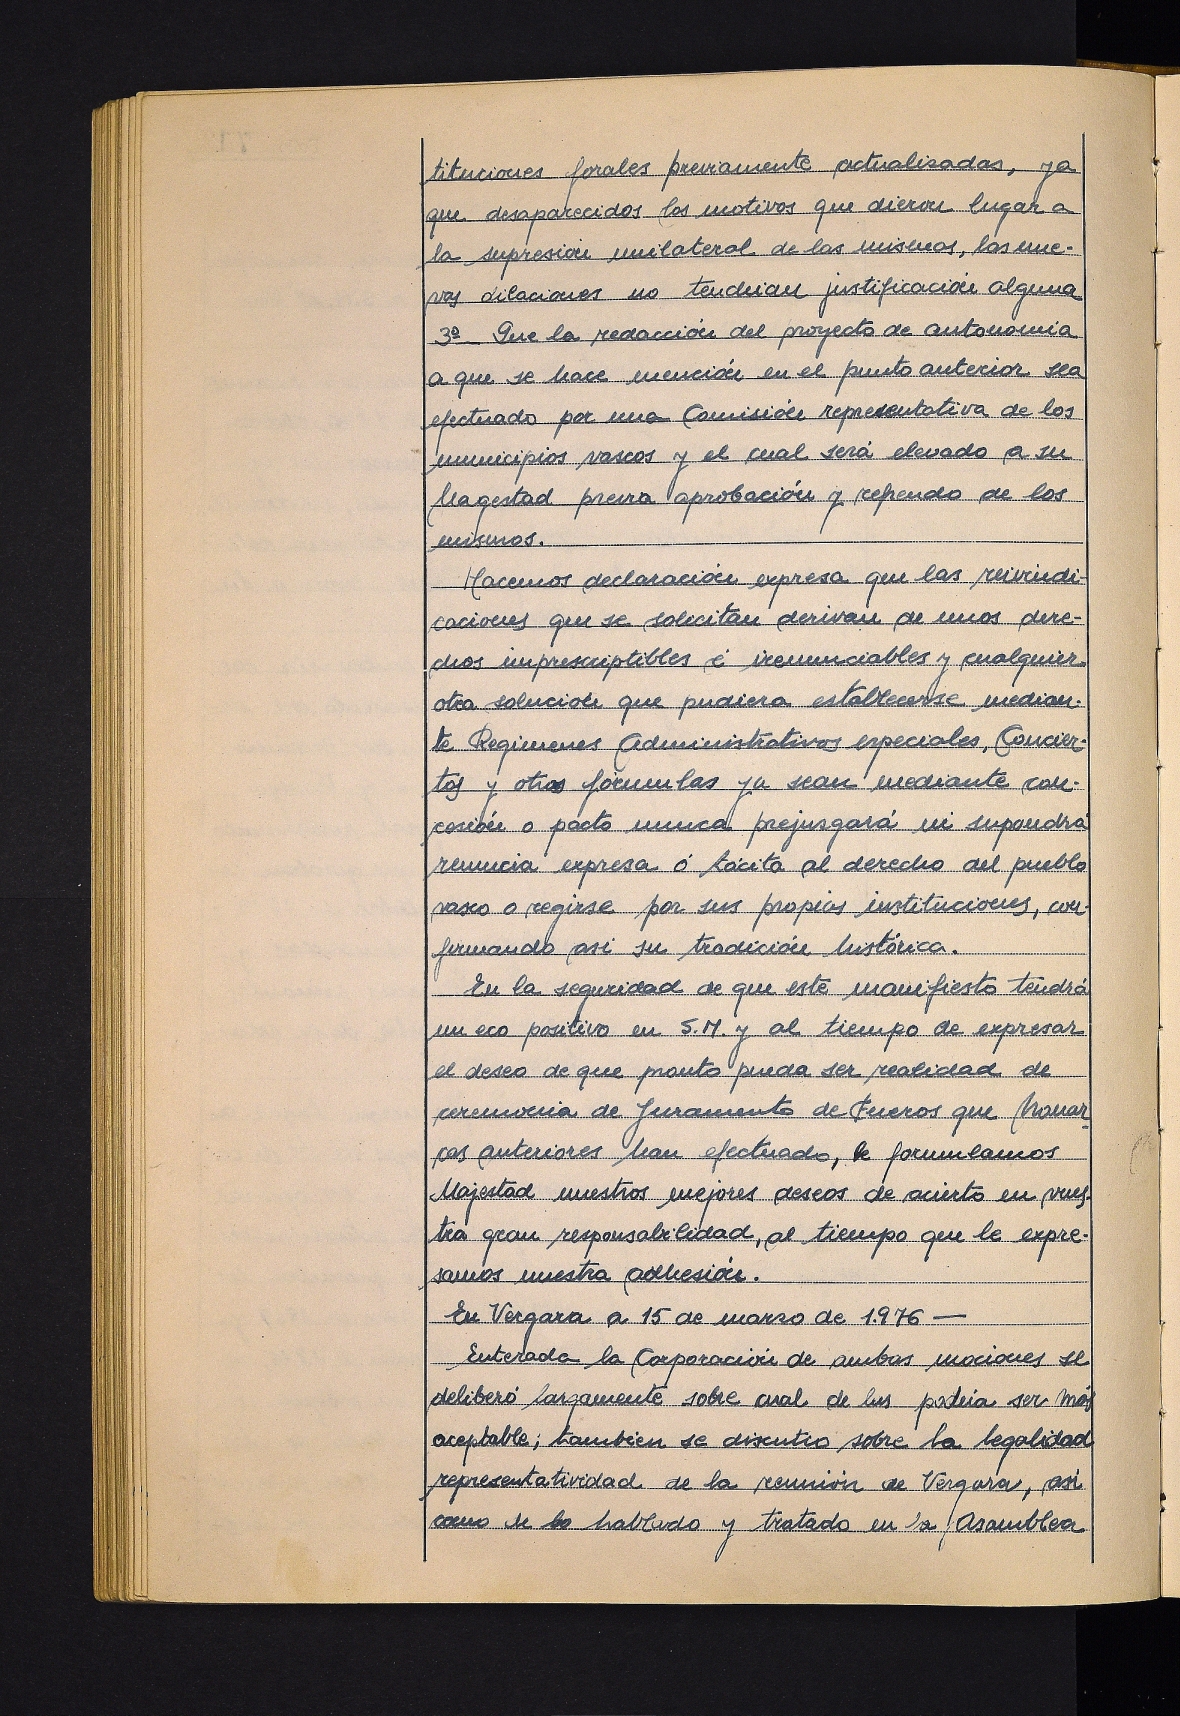 tituciones forales previamente actualizadas, ya
que desaparecidos los motivos que dieron lugar a
la supresión unilateral de las mismas, las nue-
vas dilaciones no tendrian justificación alguna
3º Que la redacción del proyecto de autonomia
a que se hace mención en el punto anterior sea
efectuado por una Comisión representativa de los
municipios vascos y el cual será elevado a su
Magestad previa aprobación y refrendo de los
mismos.
Hacemos declaración expresa que las reivindi-
caciones que se solicitan derivan de unos dere-
chos imprescriptibles é irenunciables y cualquier
otra solución que pudiera establecerse median-
te Regimenes Administrativos especiales, Concier-
tos y otras fórmulas ya sean mediante con-
cesión o pacto nunca prejuzgará ni supondrá
renuncia expresa ó tácita al derecho del pueblo
vasco a regirse por sus propias instituciones, con-
firmando asi su tradición histórica.
En la seguridad de que este manifiesto tendrá
un eco positivo en S.M. y al tiempo de expresar
el deseo de que pronto pueda ser realidad de
ceremonia de Juramento de Fueros que Monar-
cas anteriores han efectuado, le formulamos
Majestad nuestros mejores deseos de acierto en vues-
tra gran responsabilidad, al tiempo que le expre-
samos nuestra adhesión.
En Vergara a 15 de marzo de 1.976 —
Enterada la Corporación de ambas mociones se
deliberó largamente sobre cual de las podria ser más
aceptable; tambien se discutio sobre la legalidad
representatividad de la reunión de Vergara, asi
como de lo hablado y tratado en la Asamblea